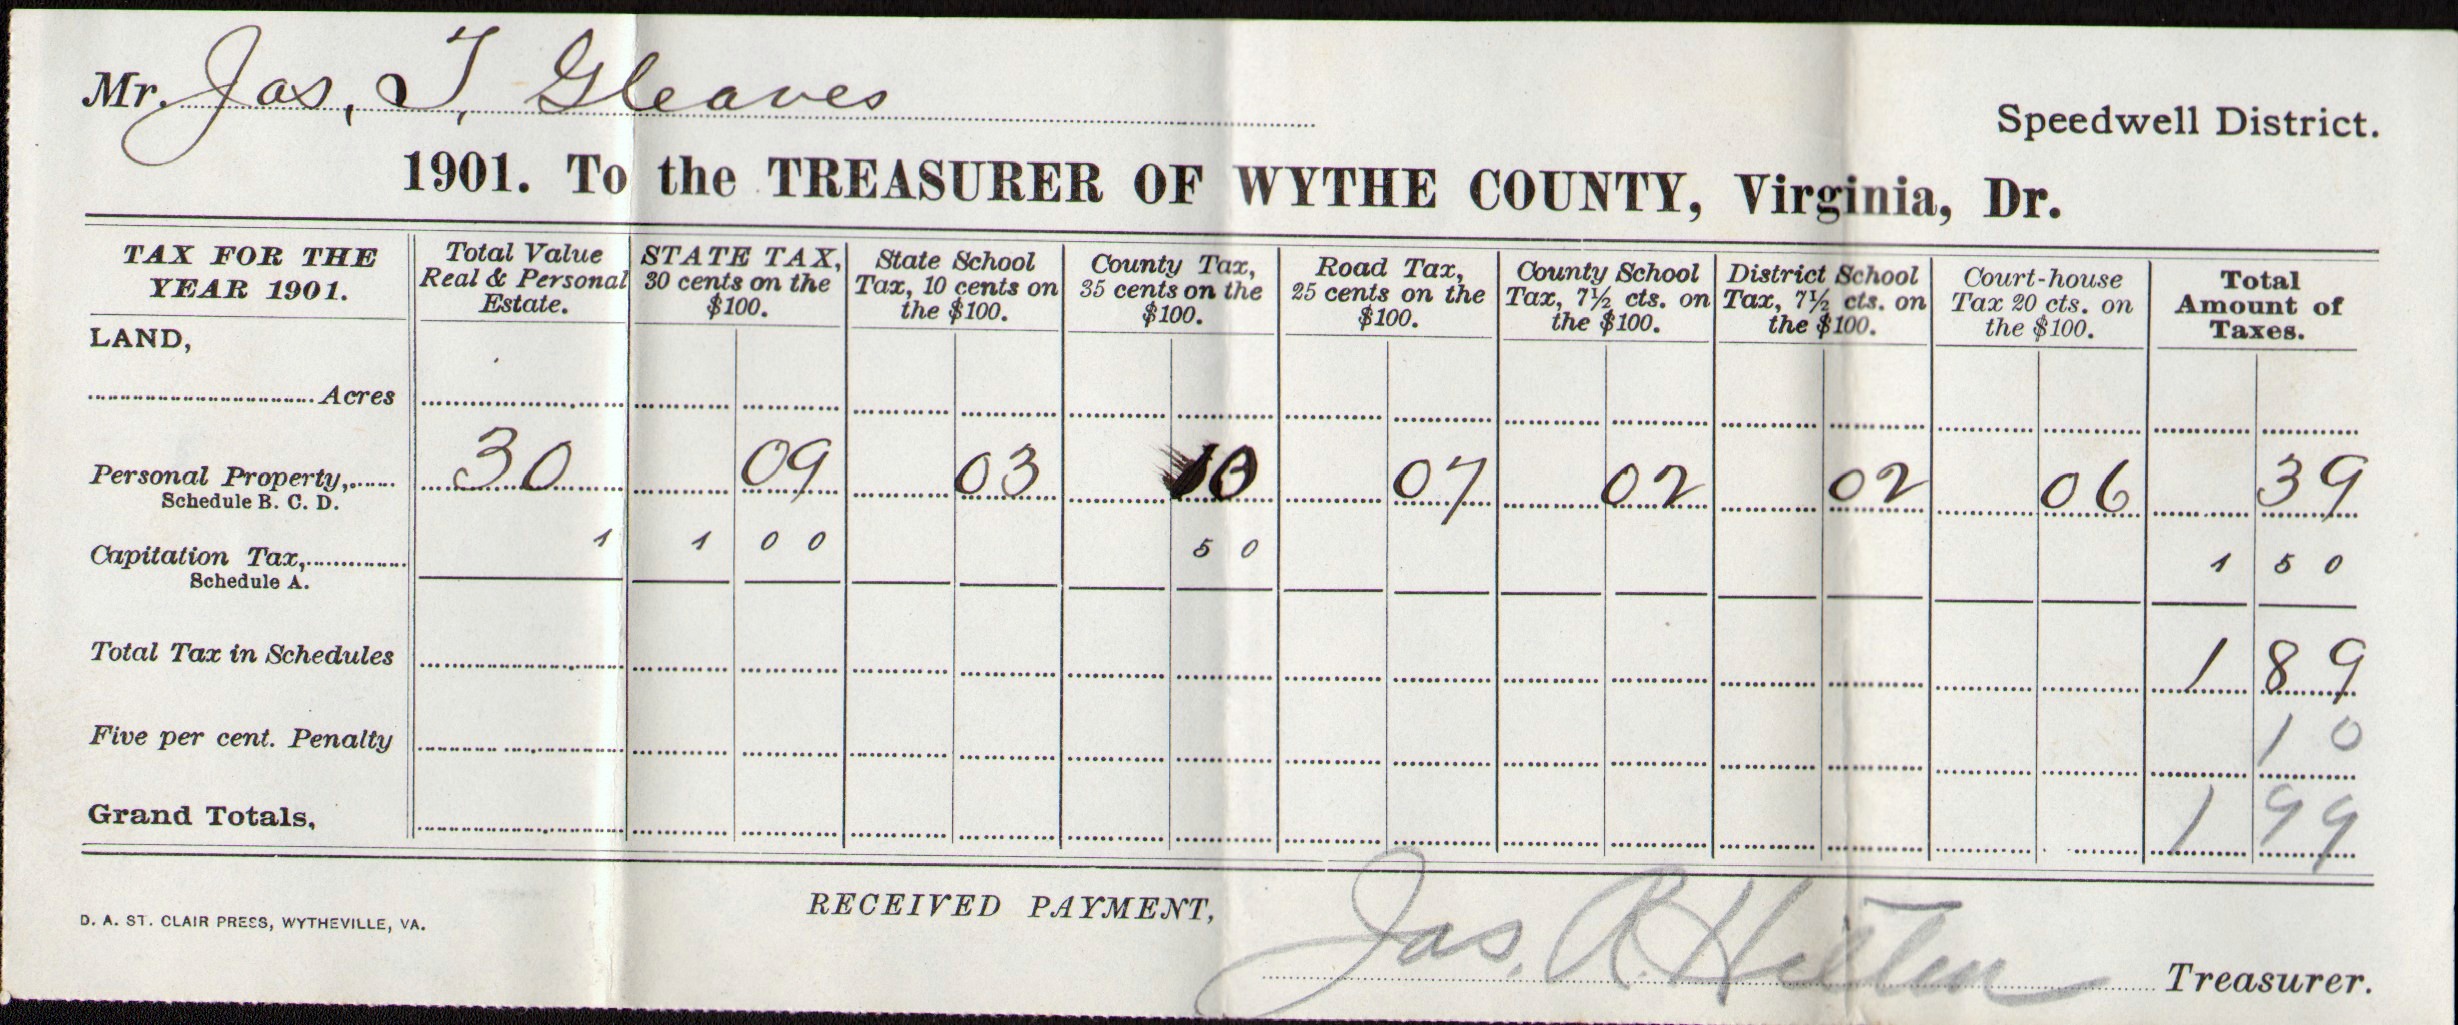 Mr. Jas. T. Gleaves
Speedwell District.
1901. To the TREASURER OF WYTHE COUNTY, Virginia, Dr.
TAX FOR THE YEAR 1901. | Total Value Real & Personal Estate. | STATE TAX, 30 cents on the $100. | State School Tax, 10 cents on the $100. | County Tax, 35 cents on the $100. | Road Tax, 25 cents on the $100. | County School Tax, 7½ cts. on the $100. | District School Tax, 7½ cts. on the $100. | Court-house Tax 20 cts. on the $100. | Total Amount of Taxes.
LAND,
Acres
Personal Property, 30 09 03 10 07 02 02 06 39
Schedule B. C. D.
Capitation Tax, 1 1 00 50 1 50
Schedule A.
Total Tax in Schedules 1 89
Five per cent. Penalty 10
Grand Totals, 1 99
RECEIVED PAYMENT,
D. A. ST. CLAIR PRESS, WYTHEVILLE, VA.
Jas. R. Treasurer.